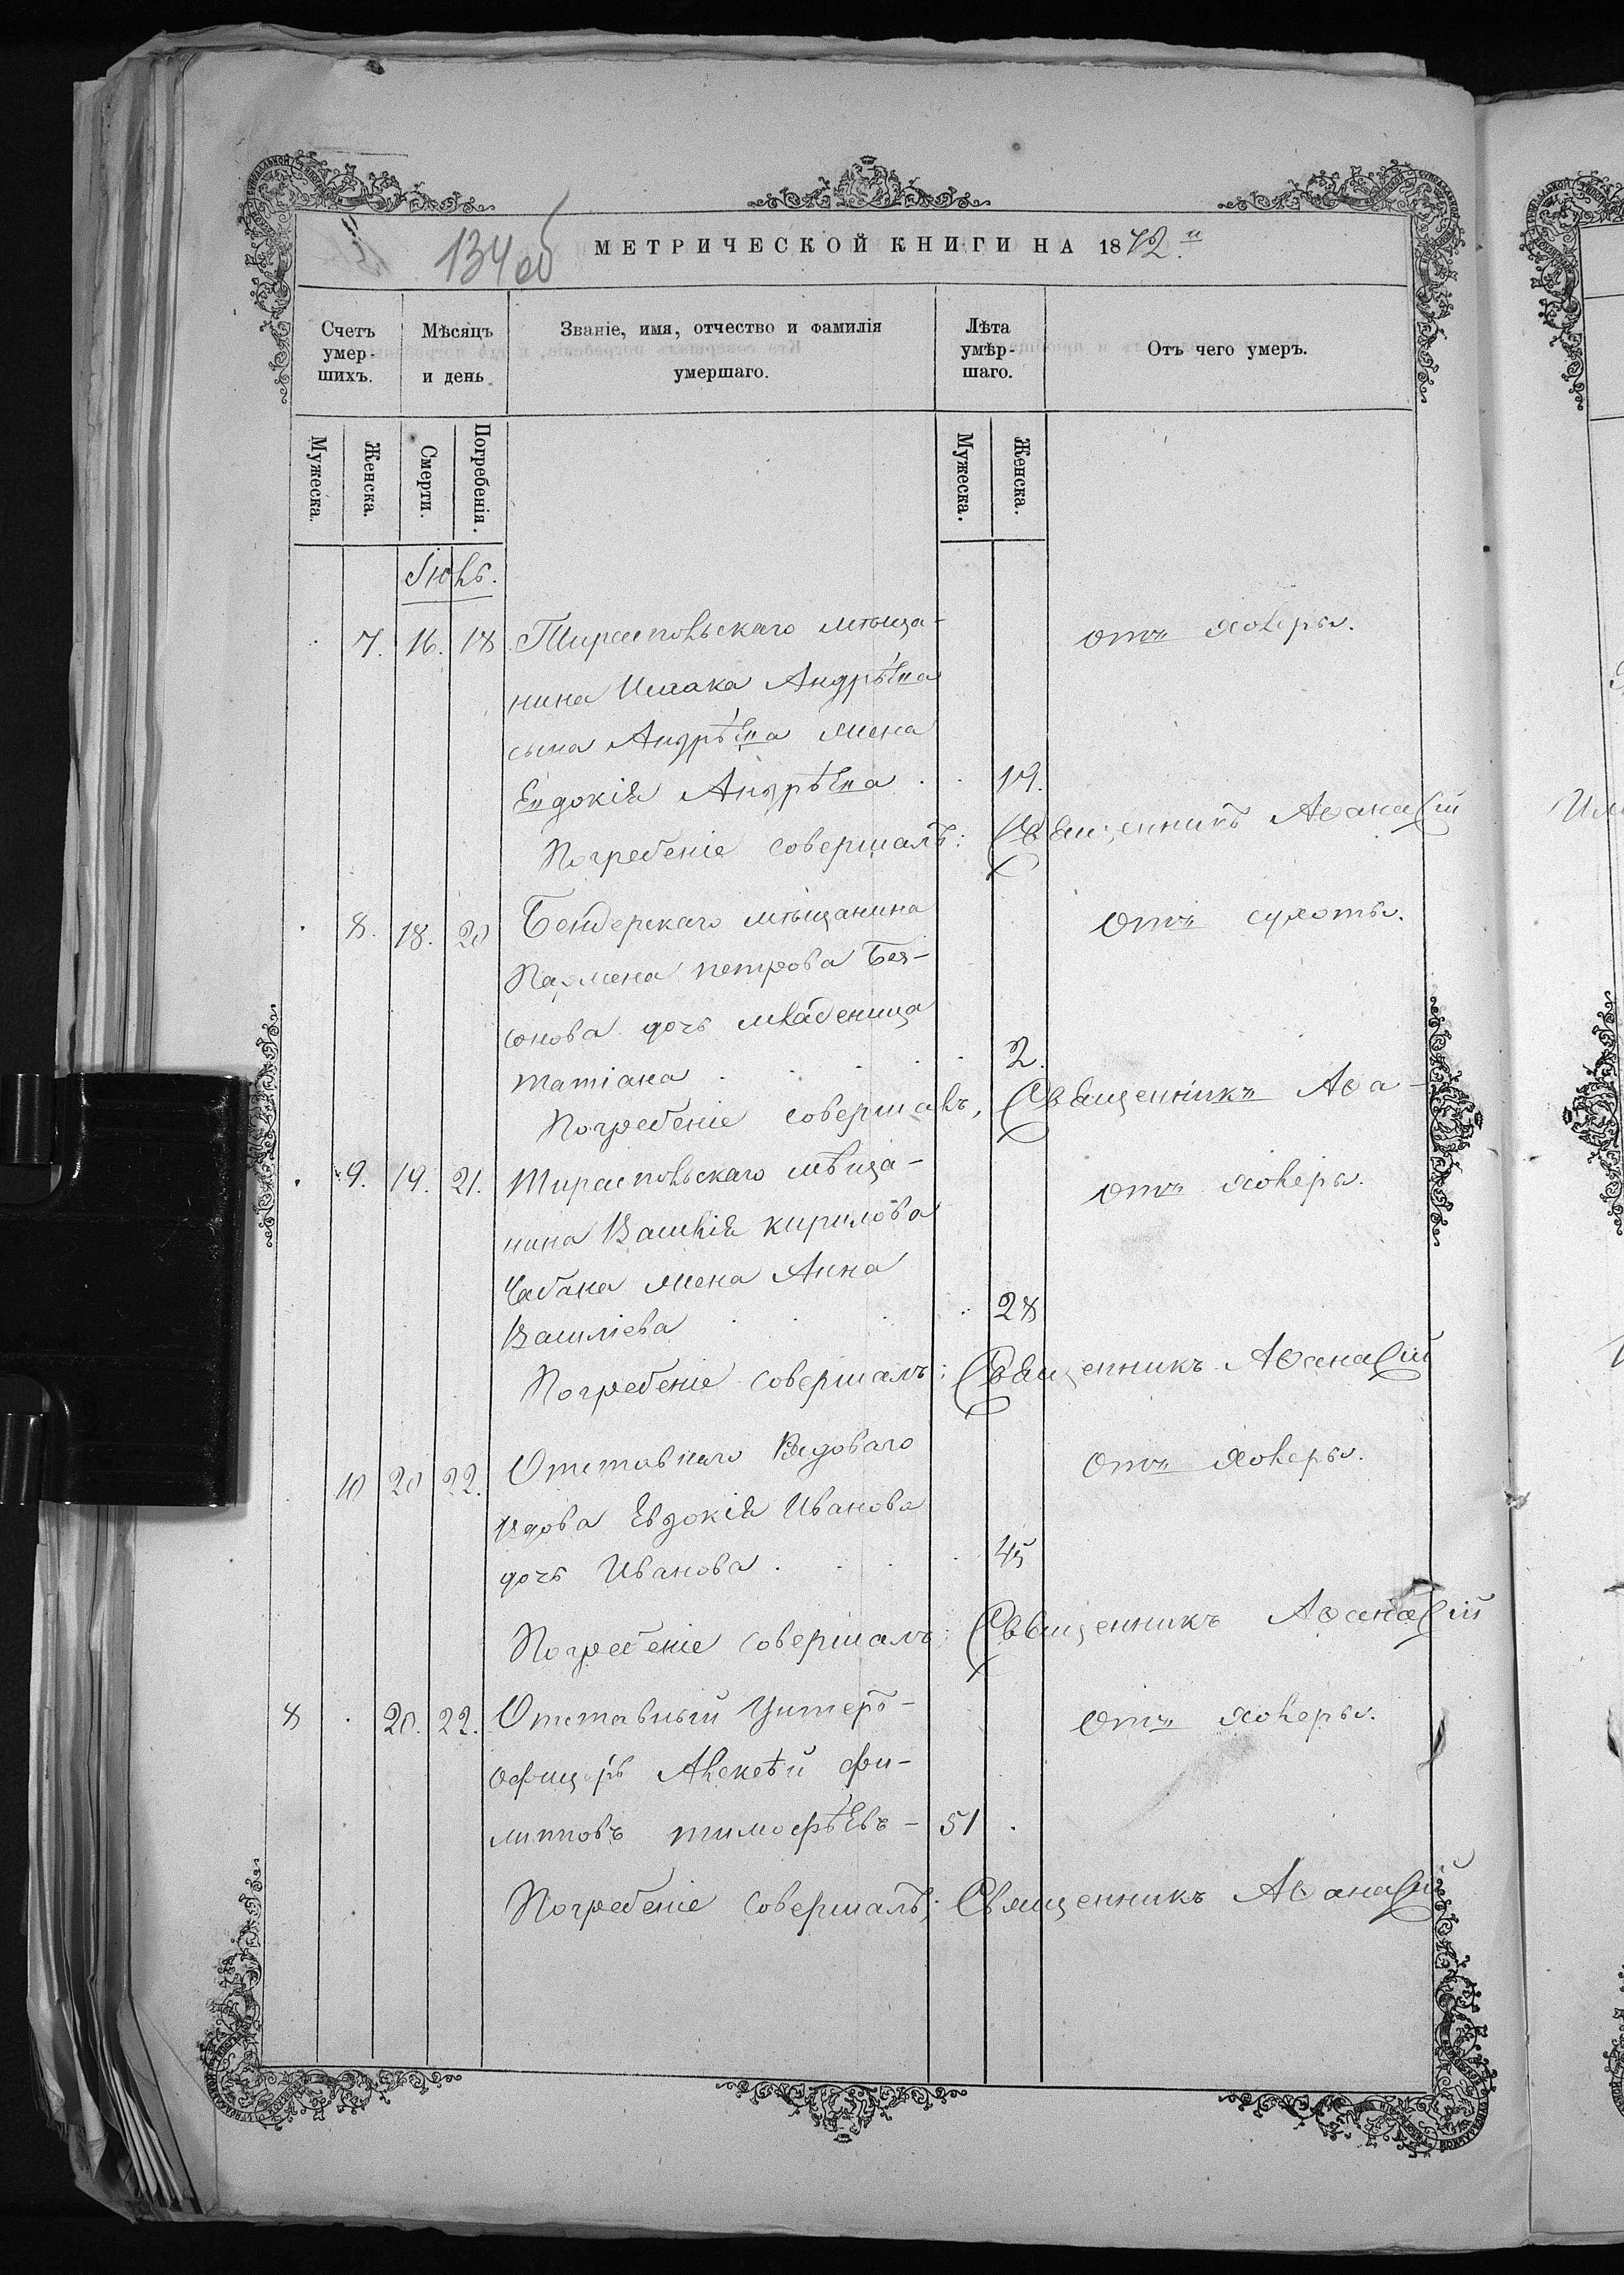 134 об
МЕТРИЧЕСКОЙ КНИГИ НА 1872.
Счетъ умер-шихъ.
Мѣсяцъ и день
Званіе, имя, отчество и фамилія умершаго.
Лѣта умѣр-шаго.
Отъ чего умеръ.
Мужеска.
Женска.
Смерти.
Погребенія.
Мужеска.
Женска.
Іюнь.
7. 16. 18 Тираспольскаго мѣща- отъ холеры.
нина Исаака Андрѣева
сына Андрѣева жена
Евдокія Андрѣева . . 19.
Погребеніе совершалъ: Священникъ Аѳанасій
8. 18. 20 Бендерскаго мѣщанина Отъ сухоты.
Пармена петрова Без-
сонова дочь младеница
татіана . . . . 2.
Погребеніе совершалъ, Священникъ Аѳа-
9. 19. 21. Тираспольскаго мѣща- отъ холеры.
нина Василія кирилова
Чабана жена Анна
Василіева . . . 28
Погребеніе совершалъ: Священникъ Аѳанасій
10 20 22. Отставнаго Рядоваго Отъ холеры.
вдова Евдокія Иванова
дочь Иванова . . . . 45
Погребеніе совершалъ: Священникъ Аѳанасій
8 . 20. 22. Отставный Унтеръ- Отъ холеры.
офицеръ Алексѣй фи-
липповъ тимофѣевъ - 51 .
Погребеніе совершалъ: Священникъ Аѳанасій